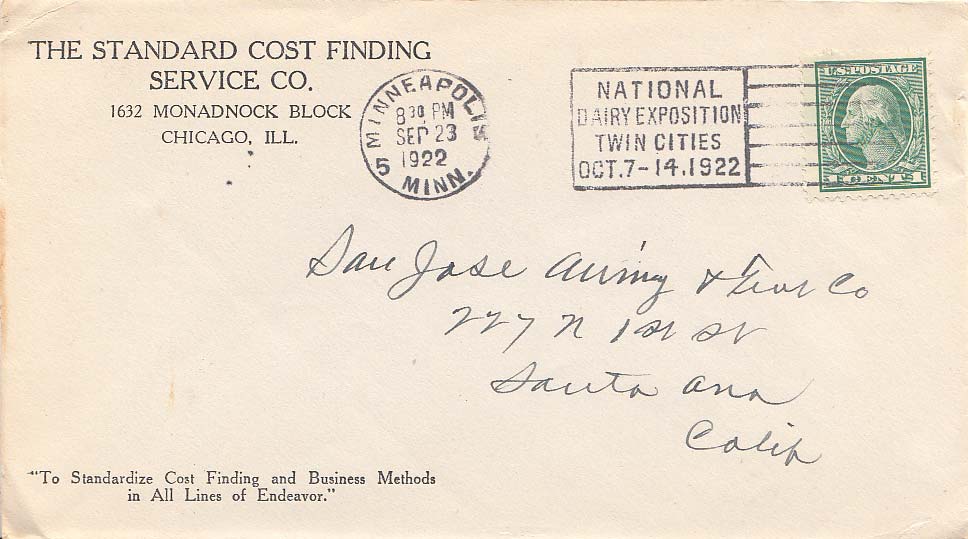 THE STANDARD COST FINDING
SERVICE CO.
1632 MONADNOCK BLOCK
CHICAGO, ILL.
MINNEAPOLIS
8 30 PM
SEP 23
1922
5 MINN.
NATIONAL
DAIRY EXPOSITION
TWIN CITIES
OCT. 7-14. 1922
U.S. POSTAGE
1 CENTS 1
San Jose & Co
227 N 1st St
Santa Ana
Calif
"To Standardize Cost Finding and Business Methods
in All Lines of Endeavor."